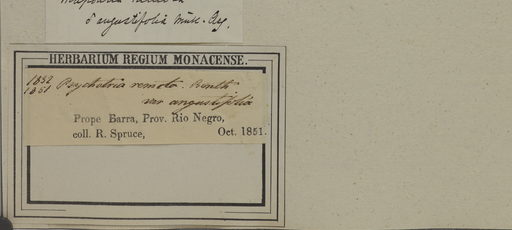 δ angustifolia Müll. Arg.
HERBARIUM REGIUM MONACENSE.
1832 Psychotria remota. Benth
1851 var angustifolia
Prope Barra, Prov. Rio Negro,
coll. R. Spruce, Oct. 1851.